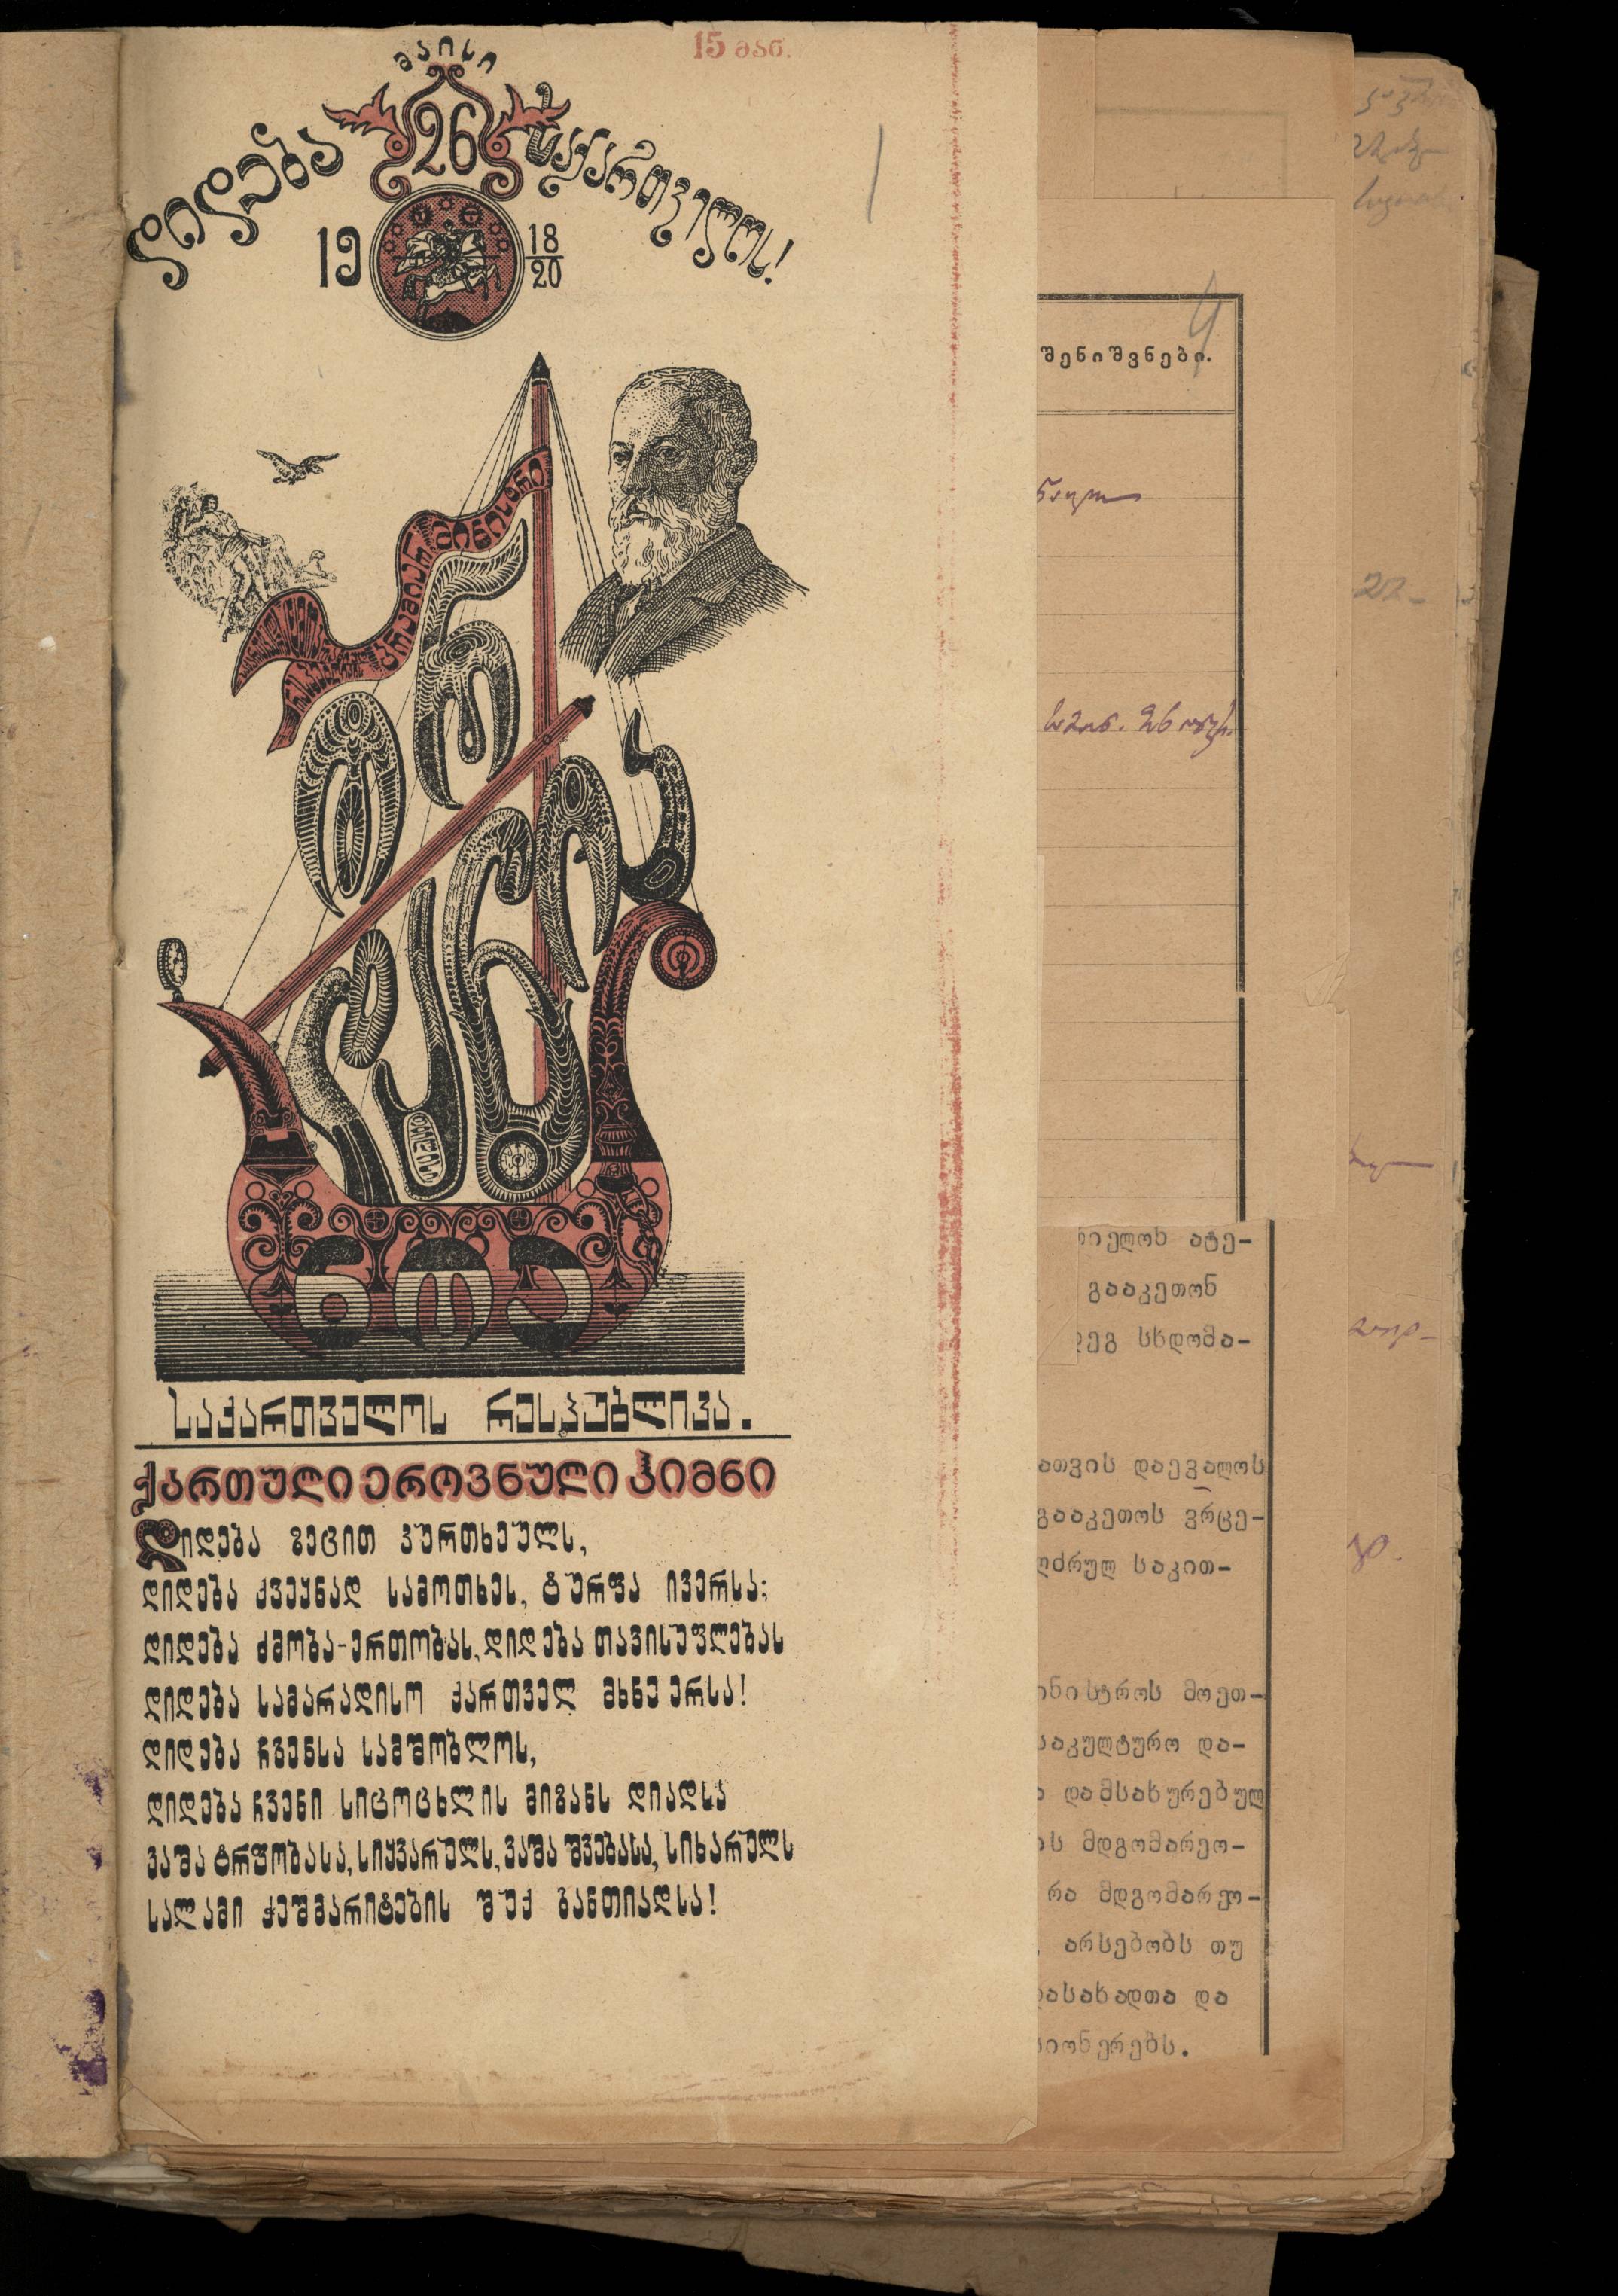 15 მან.
მაისი
26
დიდება საქართველოს!
19 18/20
პრემიერ მინისტრი
ნოე
საქართველოს რესპუბლიკა.
ქართული ეროვნული ჰიმნი
დიდება ზეცით კურთხეულს,
დიდება ქვეყნად სამოთხეს, ტურფა ივერსა;
დიდება ძმობა-ერთობას, დიდება თავისუფლებას
დიდება სამარადისო ქართველ მხნე ერსა!
დიდება ჩვენსა სამშობლოს,
დიდება ჩვენი სიცოცხლის მიზანს დიადსა
ვაშა ტრფობასა, სიყვარულს, ვაშა შვებასა, სიხარულს
სალამი ჭეშმარიტების შუქ განთიადსა!
4
შენიშვნები.
ატე-
გააკეთონ
სხდომა-
ათვის დაევალოს
გააკეთოს ვრცე-
საკით-
მოეთ-
და-
დამსახურებულ
მდგომარეო-
რა მდგომარეო-
არსებობს თუ
და